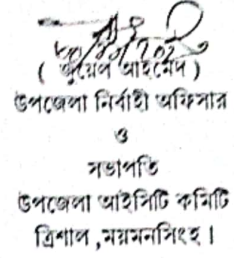 ( জুয়েল আহমেদ )
উপজেলা নির্বাহী অফিসার
ও
সভাপতি
উপজেলা আইসিটি কমিটি
ত্রিশাল ,ময়মনসিংহ।